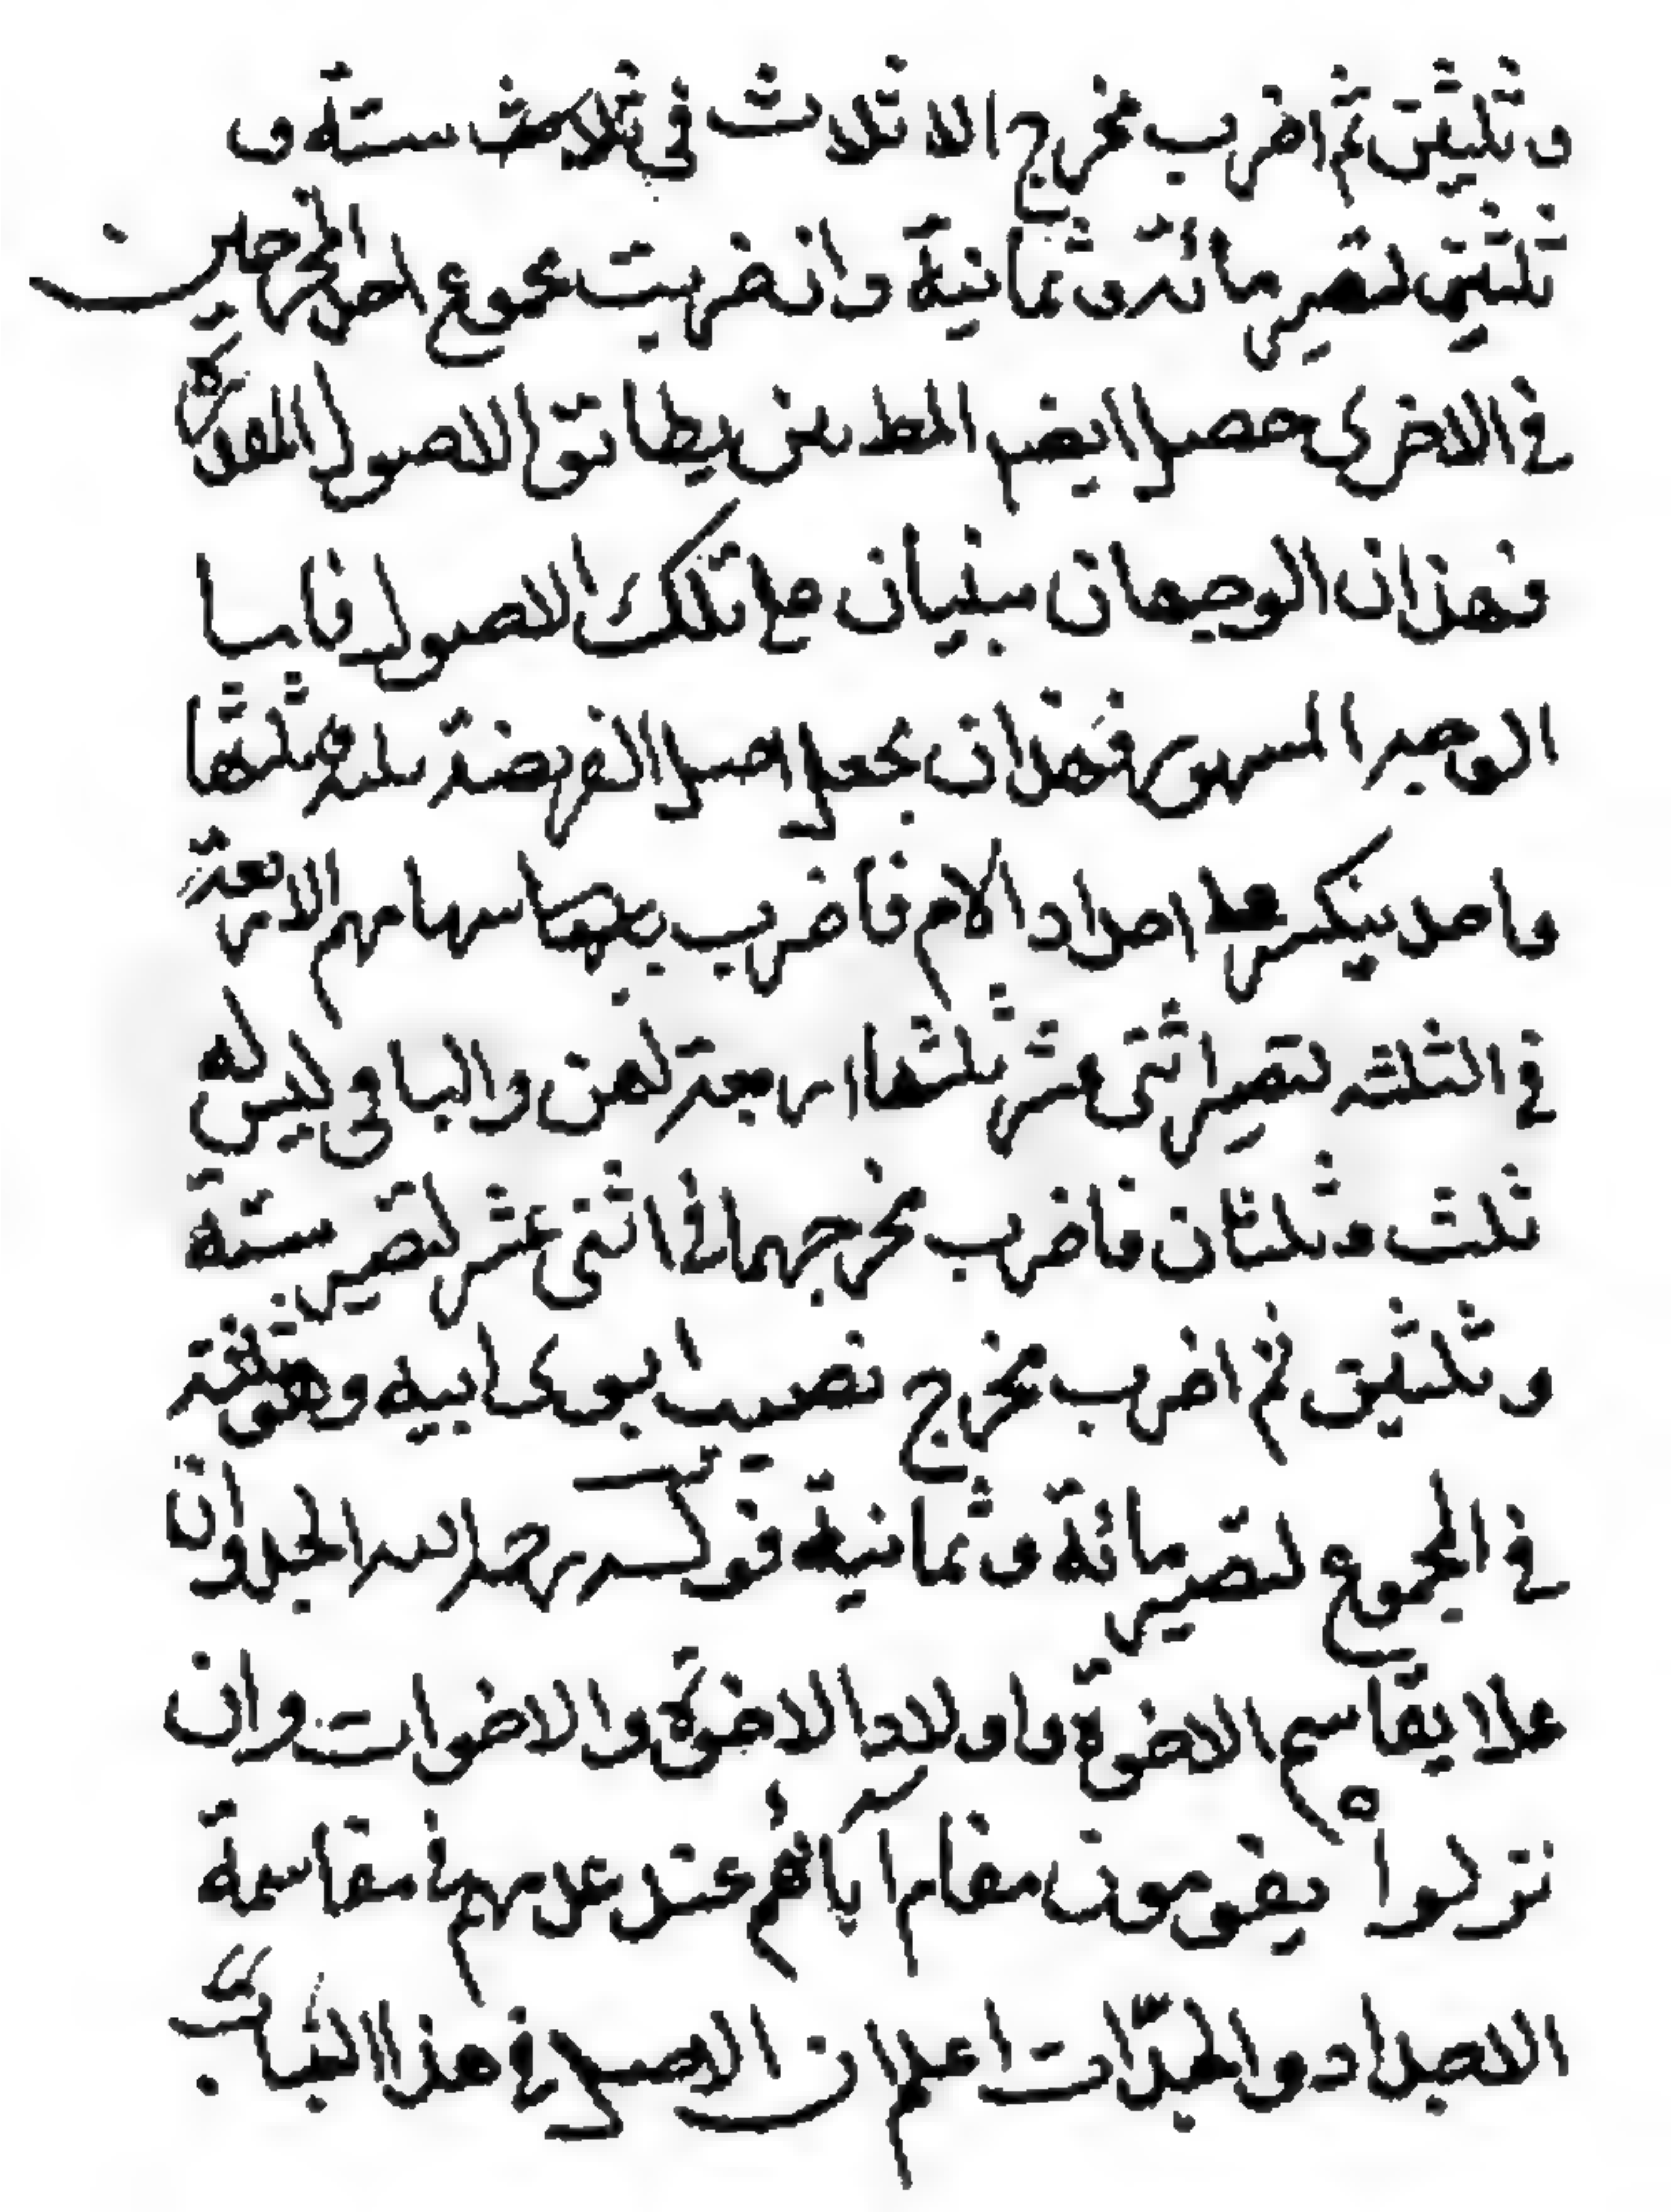 وثلثين ثم اضرب مخرج الاثلاث في ثلاث ستة و
ثلثين لتصير مائة وثمانية وان ضربت مجموع احد المخرجين
في الاخرى حصل ايضا المط من يطابق الاصول المقدم
فهذان الوجهان مبنيان على تلك الاصول فاما
الوجه المشهور فهذان يجعل اصل الفريضة ثلثة ثلثها
واحد ينكسر على اجداد الام فاضرب سهامهم الاربعة
في الثلثه لتصير اثنى عشر ثلثها اربعة لهن والباقى ليس له
ثلث وثلثان فاضرب مخرجهما في اثنى عشر لتصير ستة
وثلثين ثم اضرب مخرج نصيب ابوى ابيه وهو تسعة
في المجموع لتصير مائة وثمانية قوله رحمه الله الجد وان
علا يقاسم الاخوة واولاد الاخوة والاخوات وان
نزلوا يقومون مقام آبائهم عند عدمهم في مقاسمة
الاجداد والجدّات اعلم ان الاصل في هذا الباب